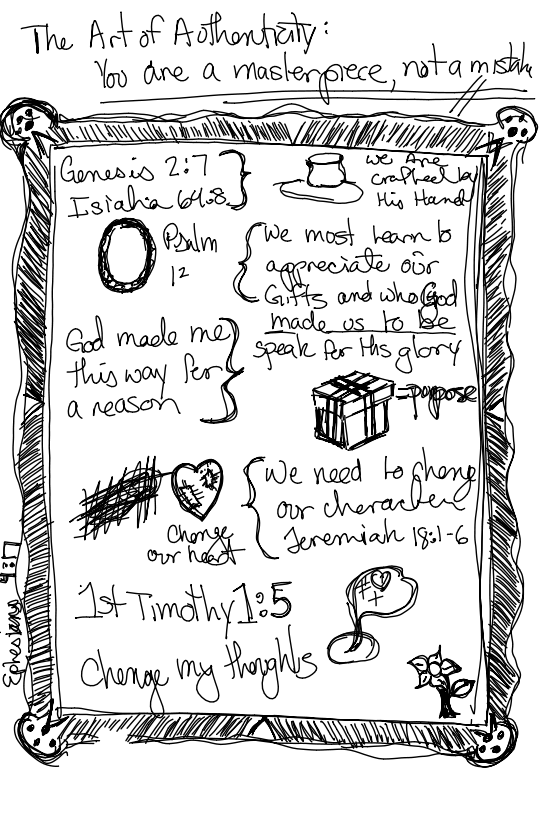 The Art of Authenticity:
You are a masterpiece, not a mistake
Genesis 2:7
Isiahia 64:8
we Are
crafted by
His Hand
Psalm
12
we most learn to
appreciate our
Gifts and who God
made us to be
speak for His glory
God made me
this way for
a reason
=purpose
change
our heart
we need to change
our character
Jeremiah 18:1-6
1st Timothy 1:5
change my thoughts
Ephesians 4:17